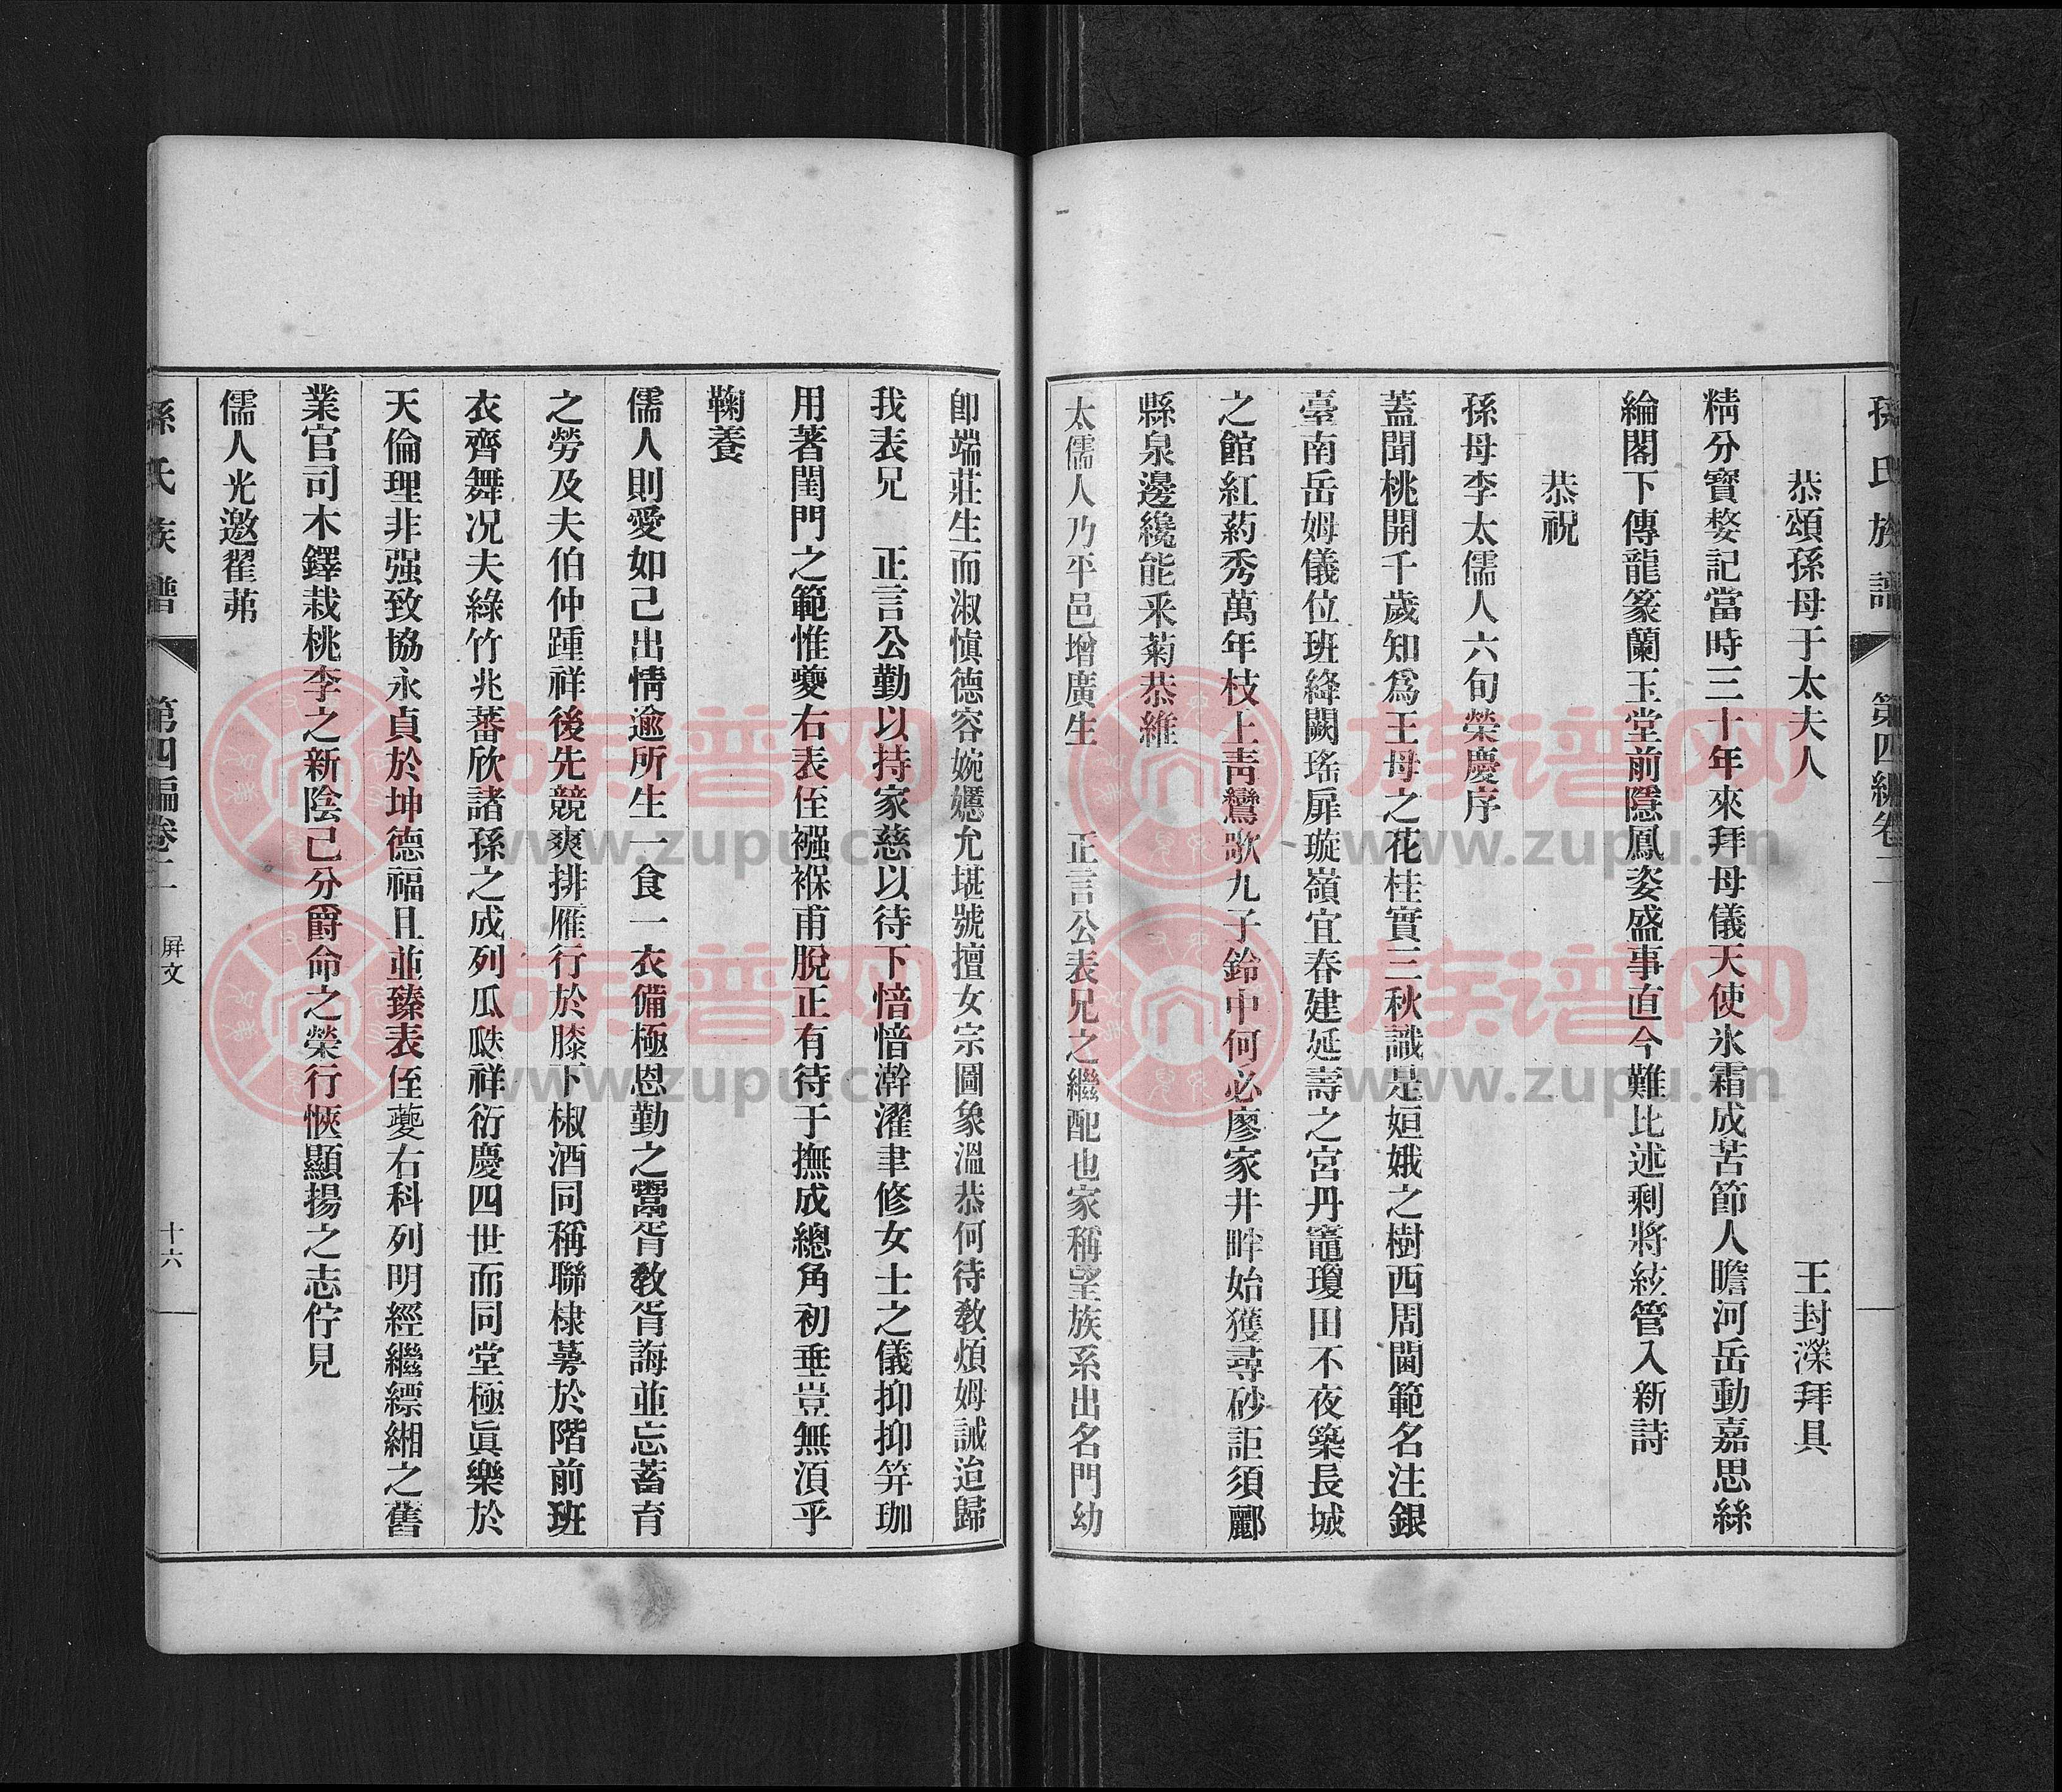 孫氏族譜 第四編卷二
恭頌孫母于太夫人 王封濚拜具
精分寶婺記當時三十年來拜母儀天使氷霜成苦節人瞻河岳動嘉思絲
綸閣下傳龍篆蘭玉堂前隱鳳姿盛事直今難比述剩將絃管入新詩
恭祝
孫母李太儒人六旬榮慶序
蓋聞桃開千歲知爲王母之花桂實三秋識是姮娥之樹西周閫範名注銀
臺南岳姆儀位班絳闕瑤扉璇嶺宜春建延壽之宮丹竈瓊田不夜築長城
之館紅葯秀萬年枝上靑鸞歌九子鈴中何必廖家井畔始獲尋砂詎須酈
縣泉邊纔能釆菊恭維
太儒人乃平邑增廣生 正言公表兄之繼配也家稱望族系出名門幼
卽端莊生而淑愼德容婉嬺允堪號擅女宗圖象溫恭何待敎煩姆誡迨歸
我表兄 正言公勤以持家慈以待下愔愔澣濯聿修女士之儀抑抑笄珈
用著閨門之範惟夔右表侄襁褓甫脫正有待于撫成總角初垂豈無湏乎
鞠養
儒人則愛如己出情逾所生一食一衣備極恩勤之鬻胥敎胥誨並忘蓄育
之勞及夫伯仲踵祥後先競爽排雁行於膝下椒酒同稱聯棣萼於階前班
衣齊舞况夫綠竹兆蕃欣諸孫之成列瓜瓞祥衍慶四世而同堂極眞樂於
天倫理非强致協永貞於坤德福且並臻表侄夔右科列明經繼縹緗之舊
業官司木鐸栽桃李之新陰己分爵命之榮行愜顯揚之志佇見
儒人光邀翟茀
孫氏族譜 第四編卷二 屛文 十六
族谱网
www.zupu.cn
族谱网
www.zupu.cn
族谱网
www.zupu.cn
族谱网
www.zupu.cn